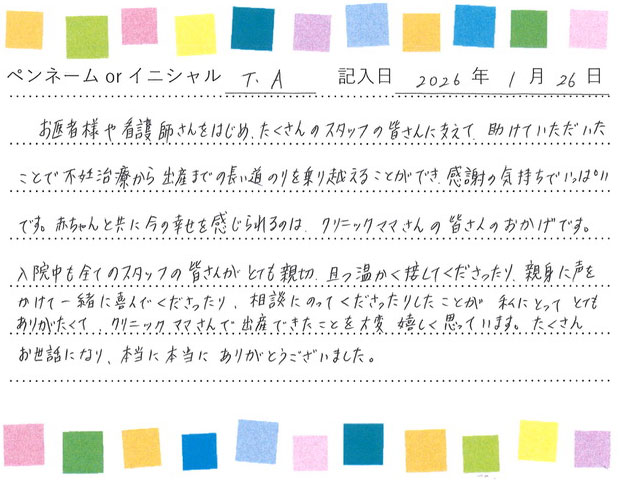 ペンネーム or イニシャル T. A 記入日 2026 年 1 月 26 日
お医者様や看護師さんをはじめ、たくさんのスタッフの皆さんに支えて、助けていただいた
ことで不妊治療から出産までの長い道のりを乗り越えることができ、感謝の気持ちでいっぱい
です。赤ちゃんと共に今の幸せを感じられるのは、クリニックママさんの皆さんのおかげです。
入院中も全てのスタッフの皆さんがとても親切、且つ温かく接してくださったり、親身に声を
かけて一緒に喜んでくださったり、相談にのってくださったりしたことが私にとってとても
ありがたくて、クリニックママさんで出産できたことを大変嬉しく思っています。たくさん
お世話になり、本当に本当にありがとうございました。